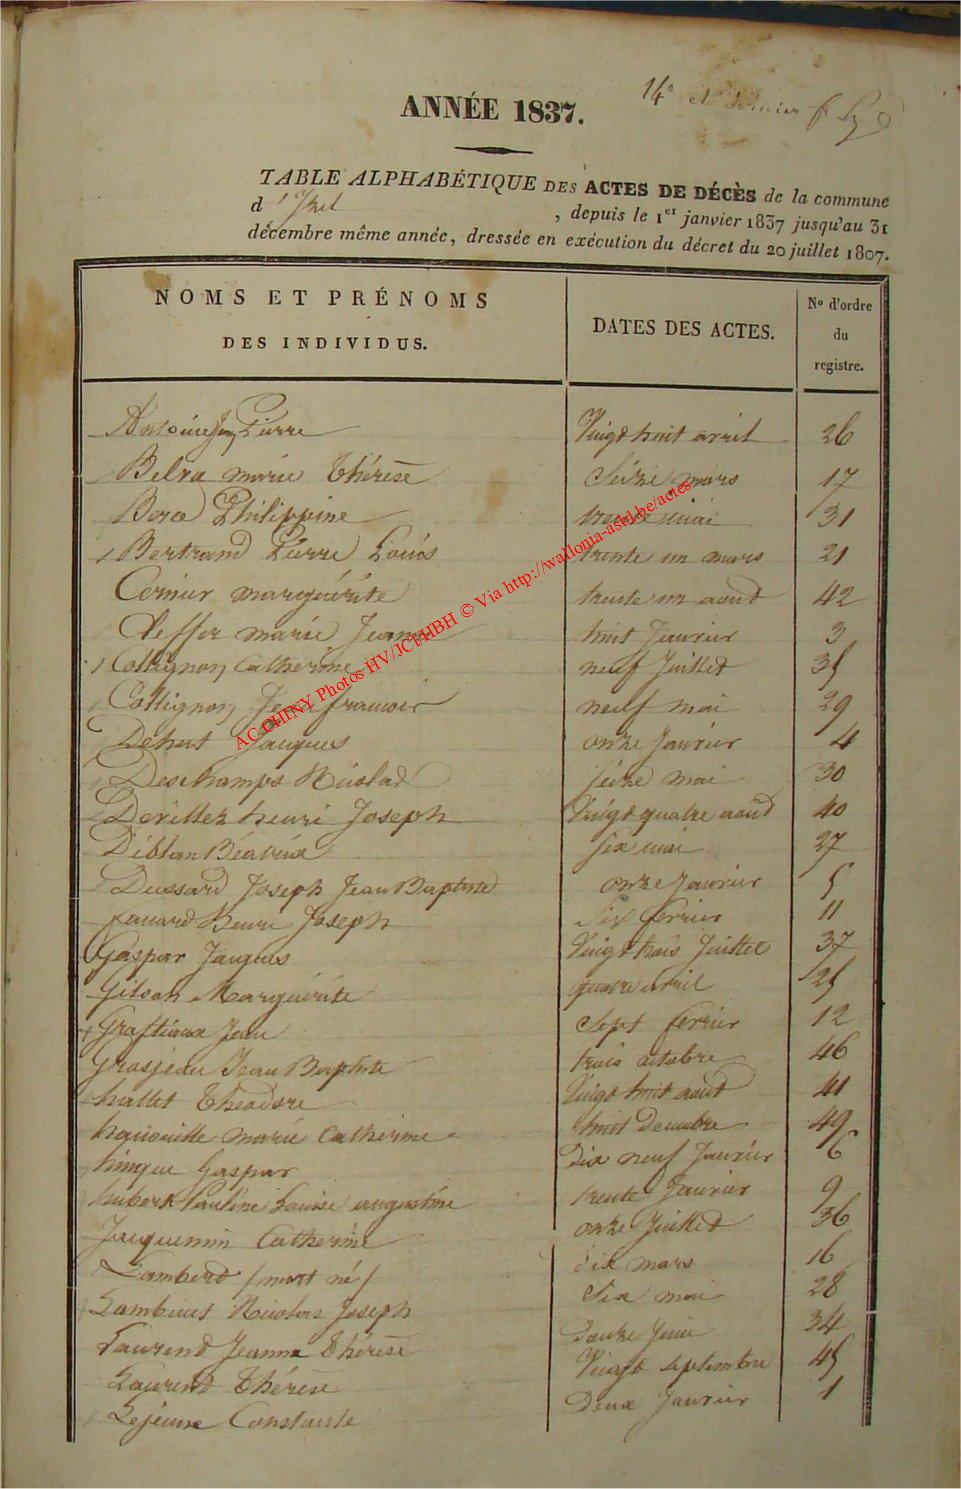 14e et dernier f
ANNÉE 1837.
TABLE ALPHABÉTIQUE DES ACTES DE DÉCÈS de la commune
d'Izel , depuis le 1er janvier 1837 jusqu'au 31
décembre même année, dressée en exécution du décret du 20 juillet 1807.
NOMS ET PRÉNOMS DES INDIVIDUS. DATES DES ACTES. No d'ordre du registre.
Antoine Jn Pierre Vingt huit avril 26
Belva marie Thérèse Seize mars 17
Philippine trente mai 31
Bertrand Pierre Louis trente un mars 21
Cornier marguérite trente un aout 42
Cleffer marie Jeanne huit Janvier 3
Collignon Catherine neuf Juillet 35
Collignon Jean francois neuf mai 29
Dehut Jacques onze Janvier 4
Deschamps Nicolas seize mai 30
Devillez henri Joseph Vingt quatre aout 40
Diblan Béatrix six mai 27
Dussard Joseph Jean Baptiste onze Janvier 5
henri Joseph Six fevrier 11
Gaspar Jacques Vingt trois Juillet 37
Gilson Marguérite quatre avril 25
Jean Sept fevrier 12
Grosjean Jean Baptiste trois octobre 46
hallet Théodore Vingt huit aout 41
marie Catherine huit Decembre 49
hinque Gaspar Dix neuf Janvier 6
hubert Pauline Louise augustine trente Janvier 9
Jacquemin Catherine onze Juillet 36
Lambert (mort né) dix mars 16
Lambinet Nicolas Joseph Six mai 28
Laurend Jeanne Thérèse Douze Juin 34
Laurend Thérèse Vingt septembre 45
Lejeune Constante Deux Janvier 1
AC CHINY Photos HV/JCP/HBH © Via http://wallonia-asbl.be/actes